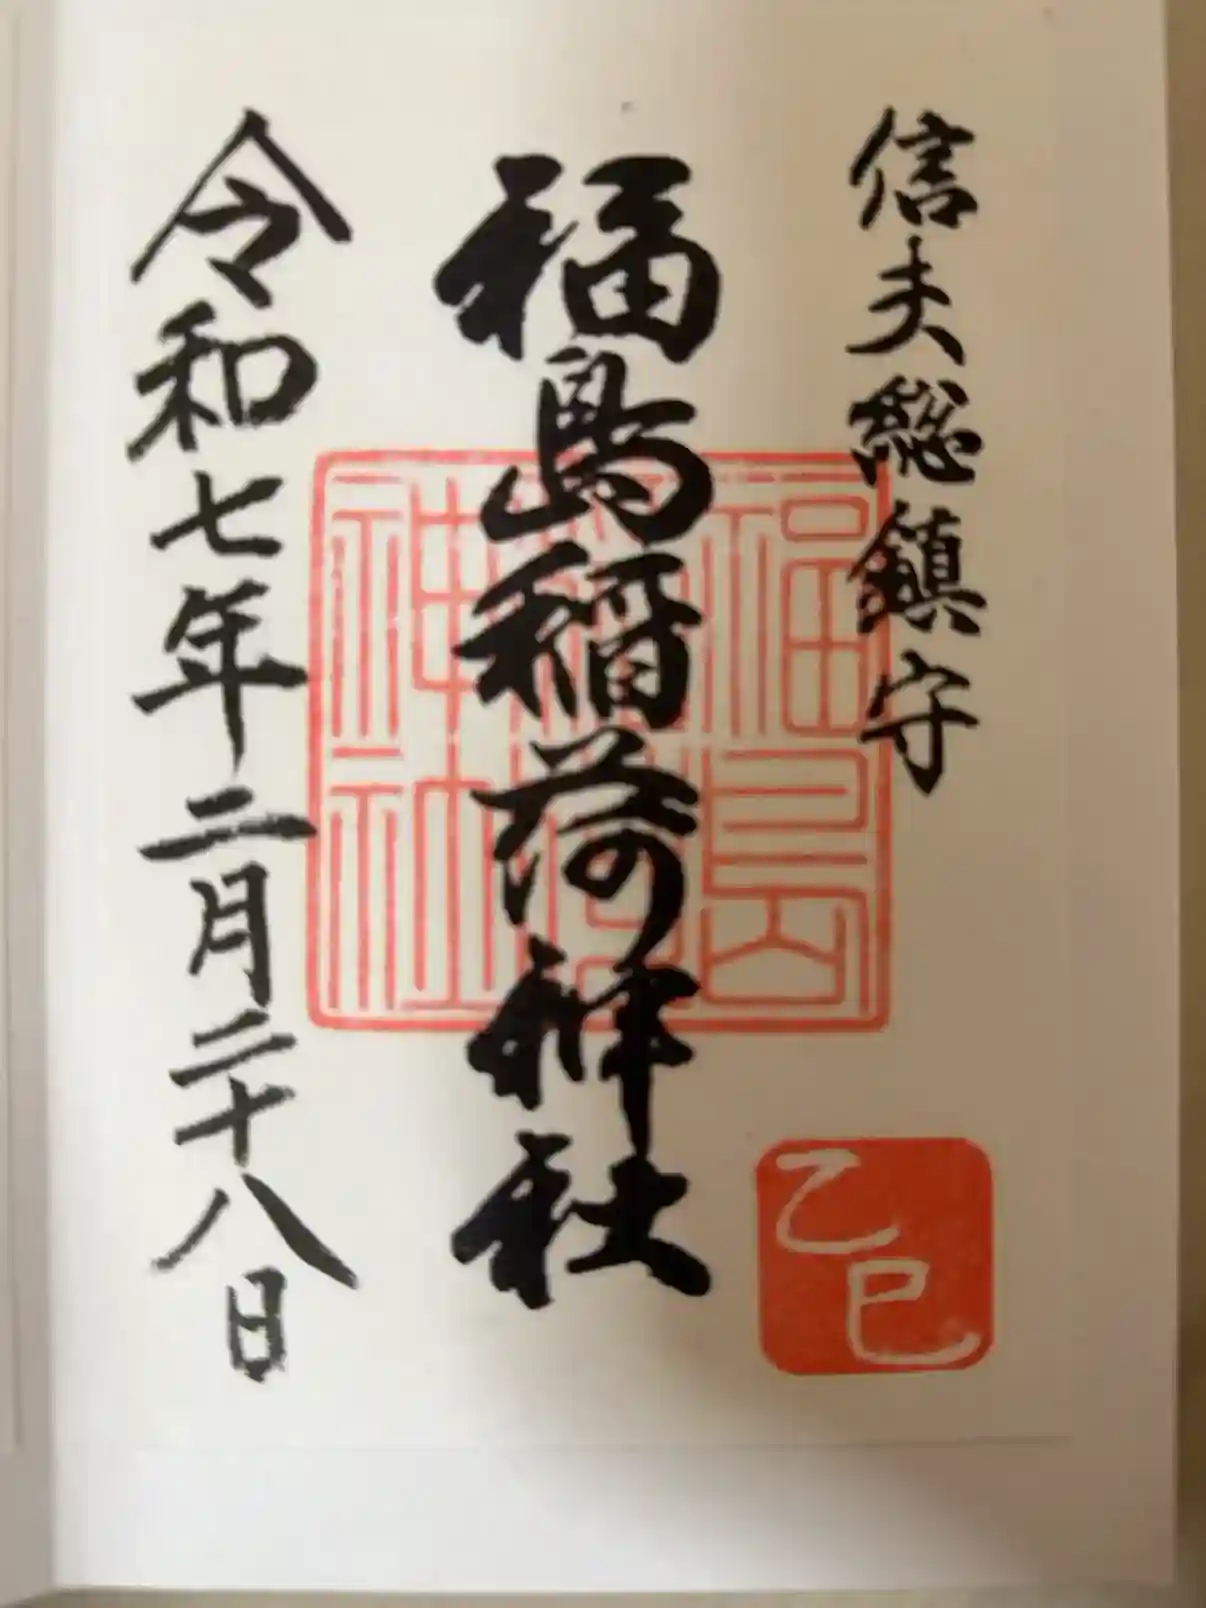 信夫総鎮守
福島稲荷神社
令和七年二月二十八日
福島
神社
乙巳